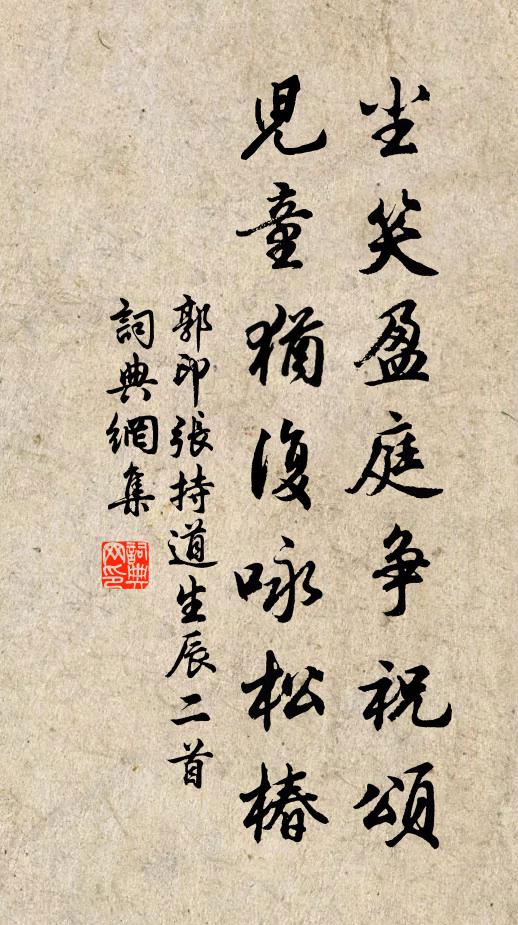 坐笑盈庭争祝頌
兒童猶復咏松椿
郭印張持道生辰二首
詞典網集
詞典网印